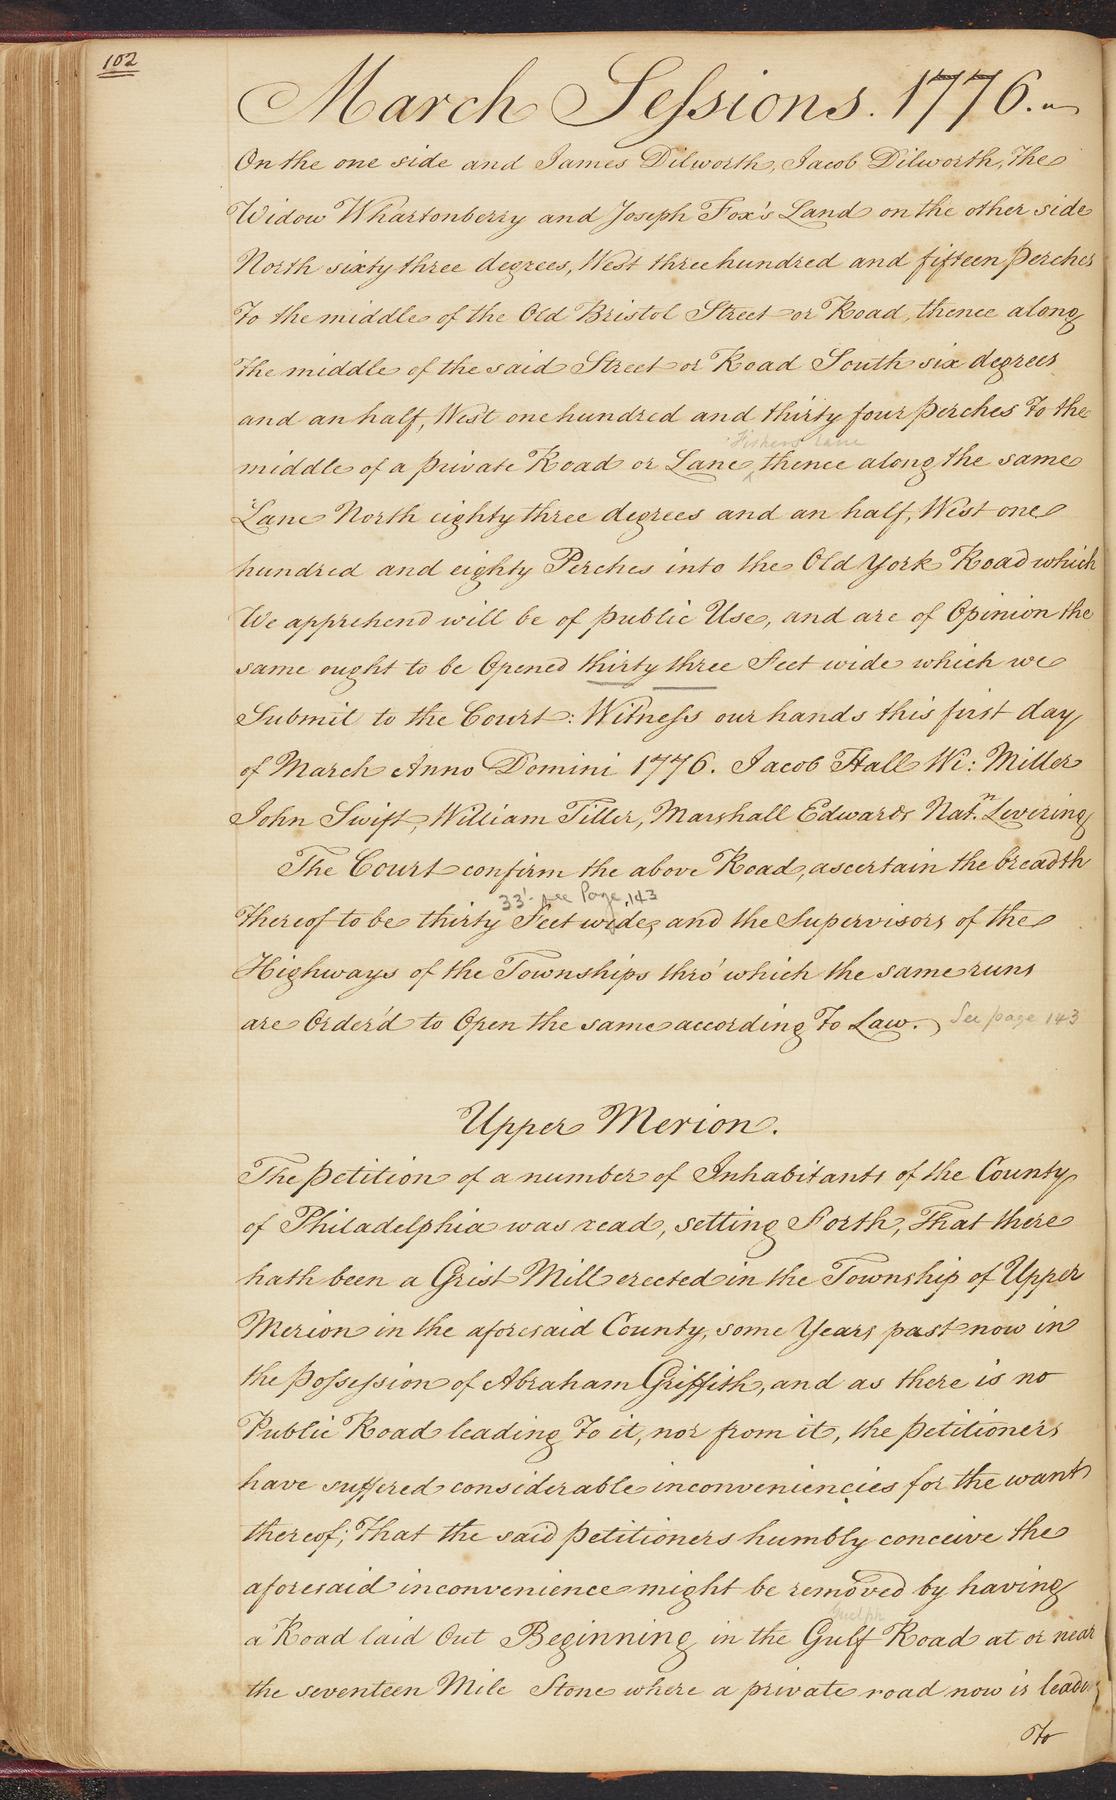 102
March Sessions. 1776.
On the one side and James Dilworth, Jacob Dilworth, The
Widow Whartonberry and Joseph Fox's Land on the other side
North sixty three degrees, West three hundred and fifteen perches
To the middle of the Old Bristol Street or Road, thence along
the middle of the said Street or Road South six degrees
and an half, West one hundred and thirty four perches To the
Fishers Lane
middle of a private Road or Lane ‸ thence along the same
Lane North eighty three degrees and an half, West one
hundred and eighty Perches into the Old York Road which
We apprehend will be of public Use, and are of Opinion the
same ought to be Opened thirty three Feet wide which we
Submit to the Court: Witness our hands this first day
of March Anno Domini 1776. Jacob Hall Wi: Miller
John Swift, William Tiller, Marshall Edwards Natn. Levering
The Court confirm the above Road, ascertain the breadth
33' see Page, 143
thereof to be thirty Feet wide, and the Supervisors of the
Highways of the Townships thro' which the same runs
are Order'd to Open the same according To Law. See page 143
Upper Merion.
The petition of a number of Inhabitants of the County
of Philadelphia was read, setting Forth, That there
hath been a Grist Mill erected in the Township of Upper
Merion in the aforesaid County, some Years past now in
the possession of Abraham Griffith, and as there is no
Public Road leading To it, nor from it, the petitioners
have suffered considerable inconveniencies for the want
thereof; That the said petitioners humbly conceive the
aforesaid inconvenience might be removed by having
Guelph
a Road laid Out Beginning in the Gulf Road at or near
the seventeen Mile Stone where a private road now is leading
To